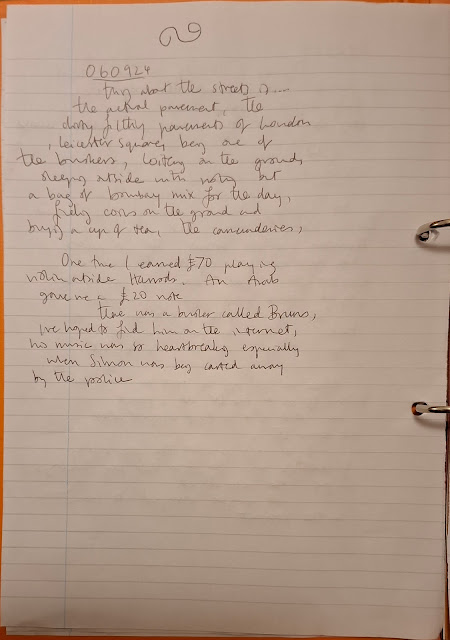 060924
thing about the streets is....
the actual pavement, the
dirty filthy pavements of London
, Leicester Square, being one of
the buskers, loitering on the ground,
sleeping outside with nothing but
a bag of bombay mix for the day,
finding coins on the ground and
buying a cup of tea, the camaraderies,
One time I earned £70 playing
violin outside Harrods. An Arab
gave me a £20 note
there was a busker called Bruno,
I've hoped to find him on the internet,
his music was so heartbreaking especially
when Simon was being carted away
by the police